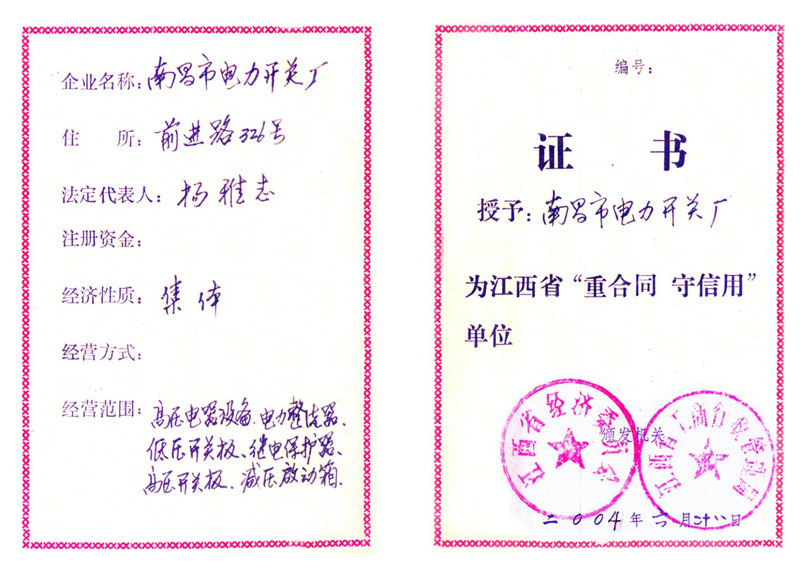 企业名称: 南昌市电力开关厂
住 所: 前进路326号
法定代表人: 杨雅志
注册资金:
经济性质: 集体
经营方式:
经营范围: 高压电器设备、电力整流器、
低压开关板、继电保护器、
高压开关板、减压啟动箱.
编号:
证 书
授予: 南昌市电力开关厂
为江西省“重合同 守信用”
单位
江西省经济委员会
江西省工商行政管理局
颁发机关
二004年六月二十八日